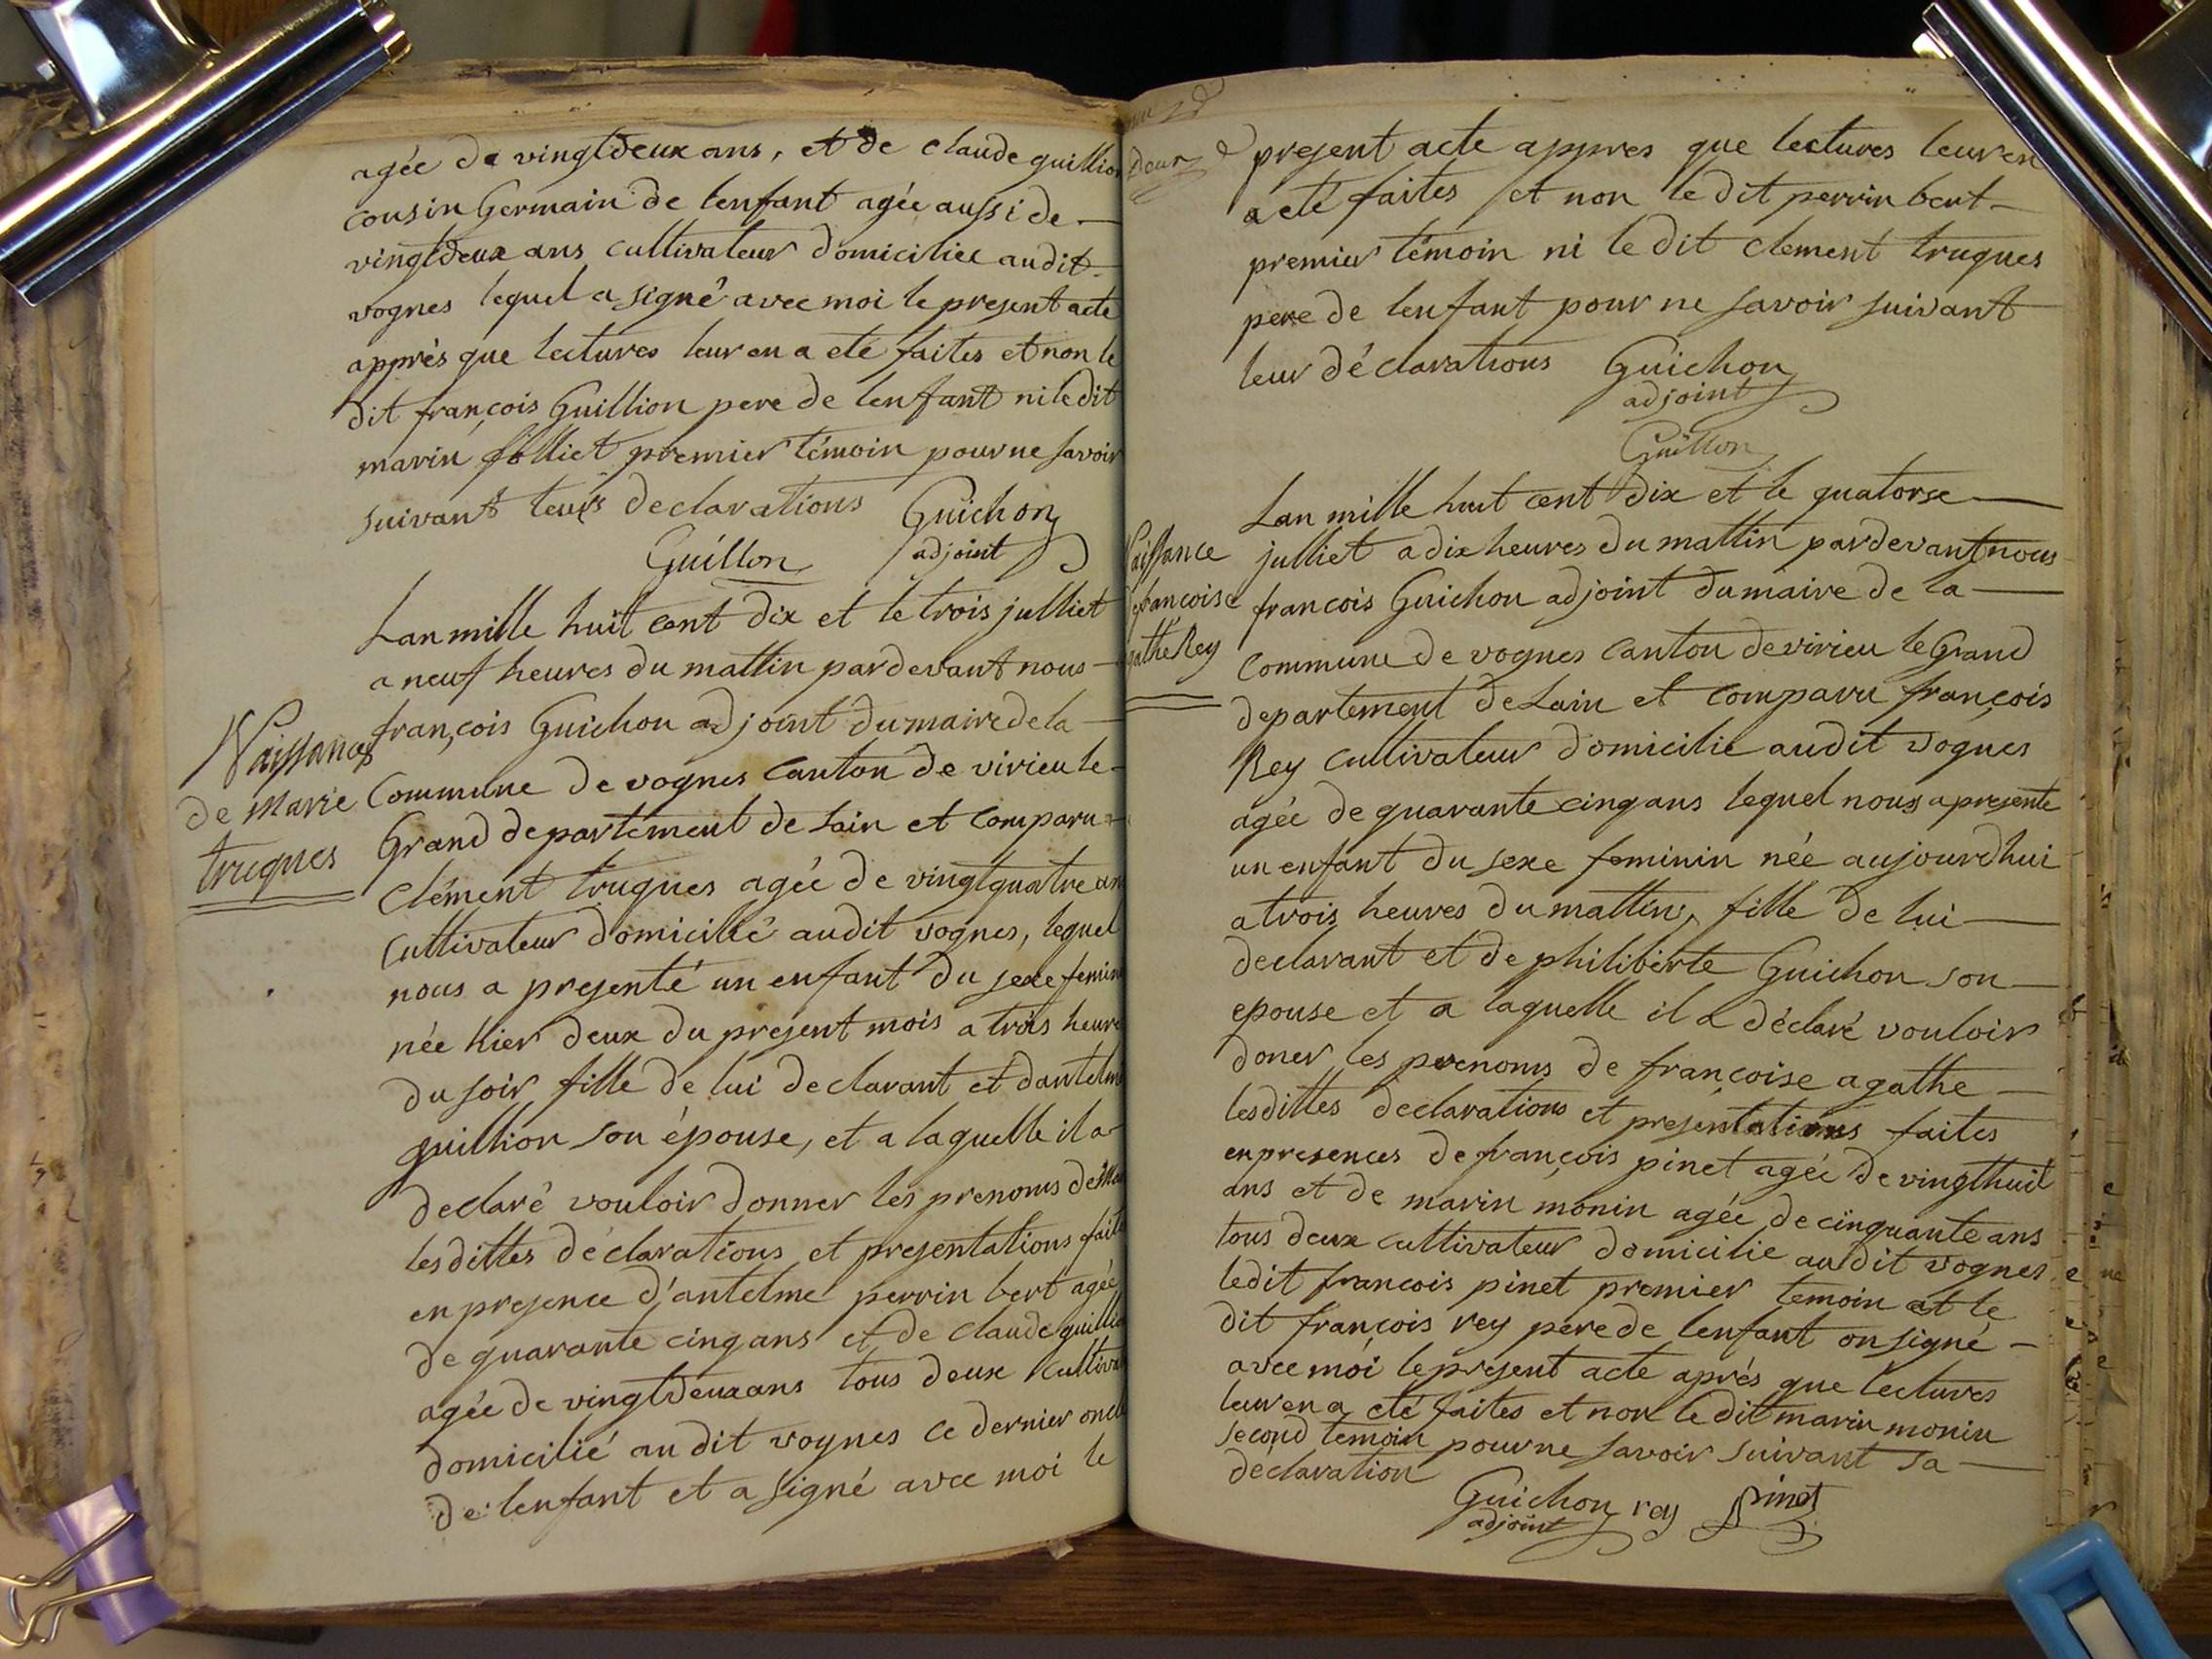 agée de vingtdeux ans, et de claude guillion
cousin Germain de lenfant agée aussi de
vingtdeux ans cultivateur domiciliee audit
vognes lequel a signé avec moi le present acte
apprès que lectures leur en a eté faites et non le
dit françois Guillion pere de lenfant ni le dit
marin folliet premier témoin pour ne savoir
suivant leurs declarations Guichon
Guillon adjoint
Lan mille huit cent dix et le trois julliet
a neuf heures du mattin pardevant nous
françois Guichon adjoint du maire de la
Naissances
de Marie
truques
Commune de vognes Canton de virieu le
Grand departement de Lain et Comparu
Clément truques agée de vingtquatre an
Cultivateur domicilié audit vognes, lequel
nous a presenté un enfant du sexe femin
née hier deux du present mois a trois heure
du soir fille de lui declarant et dantelme
guillion son épouse, et a laquelle il a
declaré vouloir donner les prenoms de
les dittes déclarations et presentations faite
en presence d'antelme perrin bert agée
de quarante cinq ans et de claude guillio
agée de vingtdeux ans tous deux Cultiva
domicilié au dit vognes ce dernier oncle
de lenfant et a signé avec moi le
Deux
present acte appres que lectures leur en
a eté faites et non le dit perrin bert
premier témoin ni le dit clement truques
pere de lenfant pour ne savoir suivant
leur déclarations Guichon
adjoint
Guillon
Naissance
françoise
agathe Rey
Lan mille huit cent dix et le quatorse
julliet a dix heures du mattin pardevant nous
francois Guichon adjoint du maire de la
Commune de vognes Canton de virieu le Grand
departement de Lain et comparu françois
Rey Cultivateur domicilie audit vognes
agée de quarante cinq ans lequel nous a presente
un enfant du sexe feminin née aujourdhui
a trois heures du mattin, fille de lui
declarant et de philiberte Guichon son
epouse et a laquelle il a déclaré vouloir
doner les prenoms de françoise agathe
les dittes declarations et presentations faites
en presences de françois pinet agée de vingthuit
ans et de marin monin agée de cinquante ans
tous deux cultivateur domicilie audit vognes
ledit francois pinet premier temoin et le
dit françois rey pere de lenfant on signé
avec moi le present acte après que lectures
leur en a eté faites et non le dit marin monin
second temoin pour ne savoir suivant sa
declaration
Guichon rey Pinet
adjoint